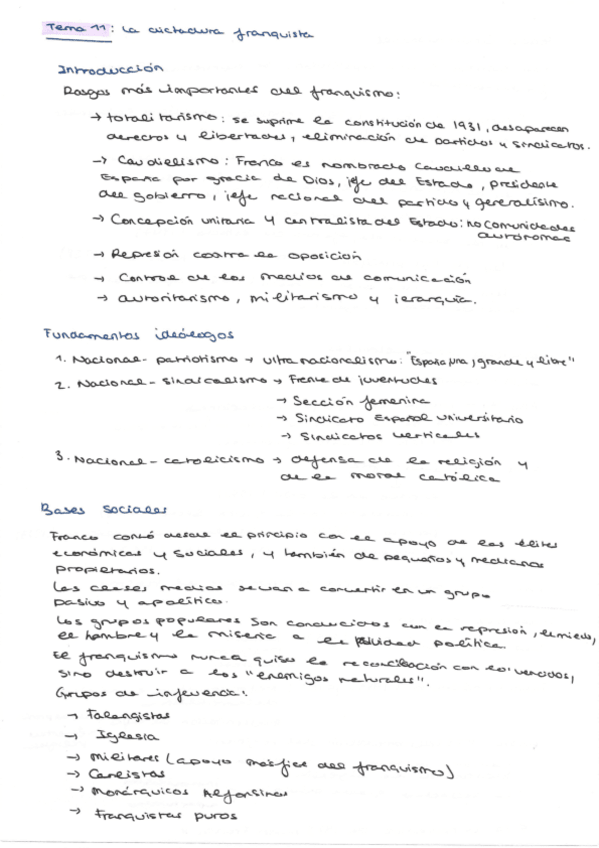 Tema 11: La dictadura franquista
Introducción
Rasgos más importantes del franquismo:
→ totalitarismo: se suprime la constitución de 1931, desaparecen
derechos y libertades, eliminación de partidos y sindicatos.
→ Caudillismo: Franco es nombrado Caudillo de
España por gracia de Dios, jefe del Estado, presidente
del gobierno, jefe nacional del partido y generalísimo.
→ Concepción unitaria y centralista del Estado: no comunidades
autónomas
→ Represión contra la oposición
→ Control de los medios de comunicación
→ autoritarismo, militarismo y jerarquía.
Fundamentos ideólogos
1. Nacional-patriotismo → ultranacionalismo: "España una, grande y libre"
2. Nacional-sindicalismo → Frente de juventudes
→ Sección femenina
→ Sindicato Español Universitario
→ Sindicatos verticales
3. Nacional-catolicismo → defensa de la religión y
de la moral católica
Bases sociales
Franco contó desde el principio con el apoyo de las élites
económicas y sociales, y también de pequeños y medianos
propietarios.
Las clases medias se van a convertir en un grupo
pasivo y apolítico.
Los grupos populares son conducidos con la represión, el miedo,
el hambre y la miseria a la política.
El franquismo nunca quiso la reconciliación con los vencidos,
sino destruir a los "enemigos naturales".
Grupos de influencia:
→ Falangistas
→ Iglesia
→ Militares (apoyo más fiel del franquismo)
→ Carlistas
→ Monárquicos Alfonsinos
→ Franquistas puros